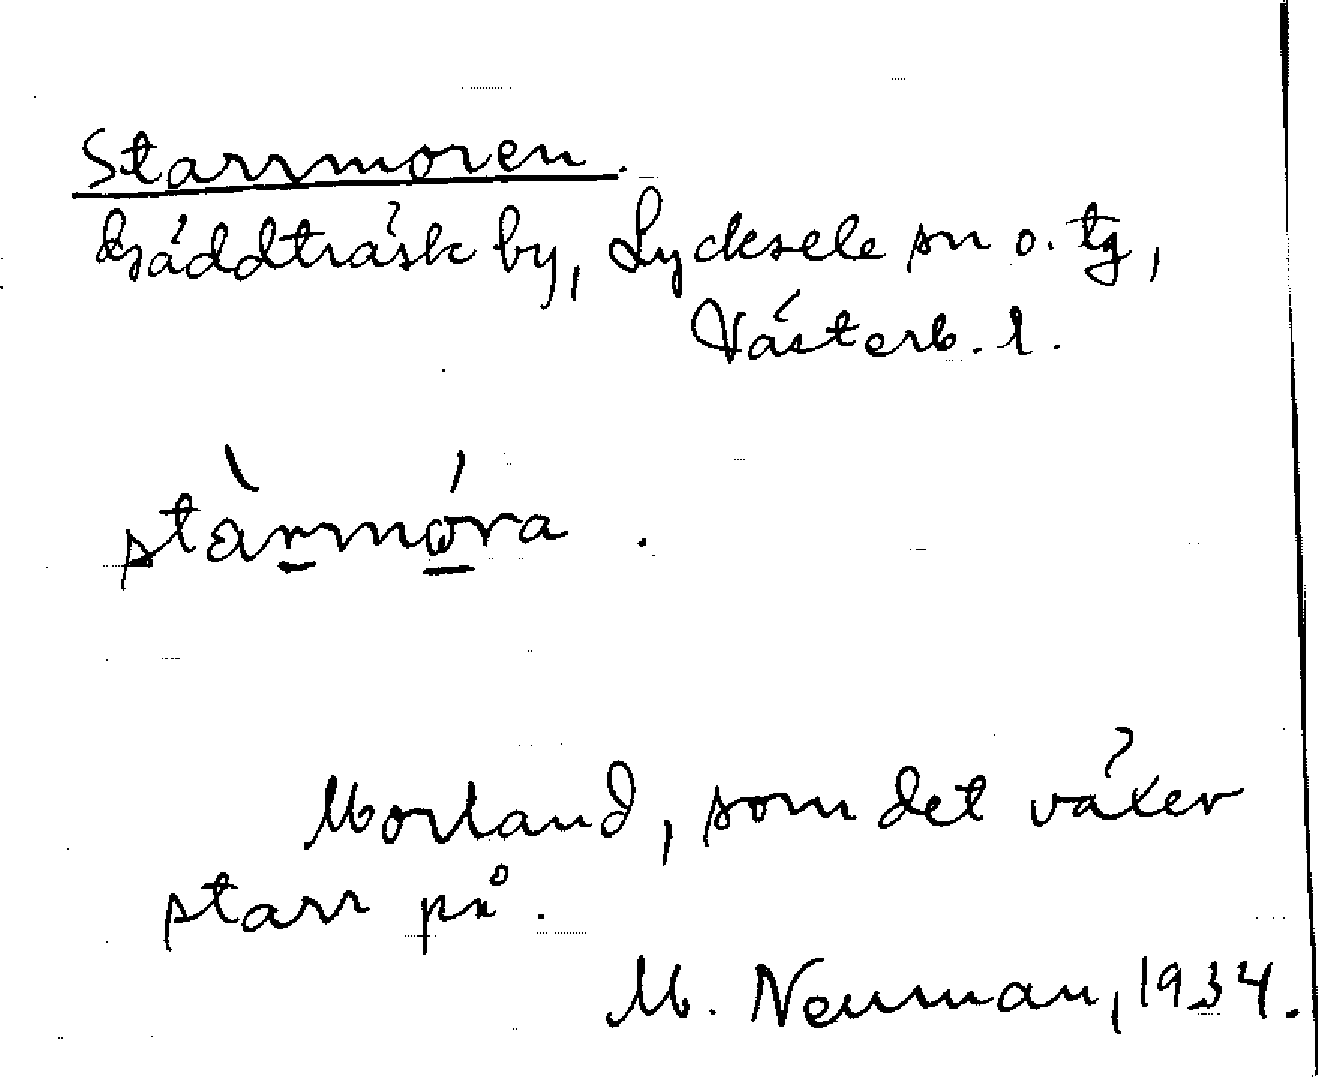 Starrmoren.
Gäddträsk by, Lycksele sn o. tg,
Västerb. l.
stàrmóra.
Morland, som det växer
starr på.
M. Neuman, 1934.